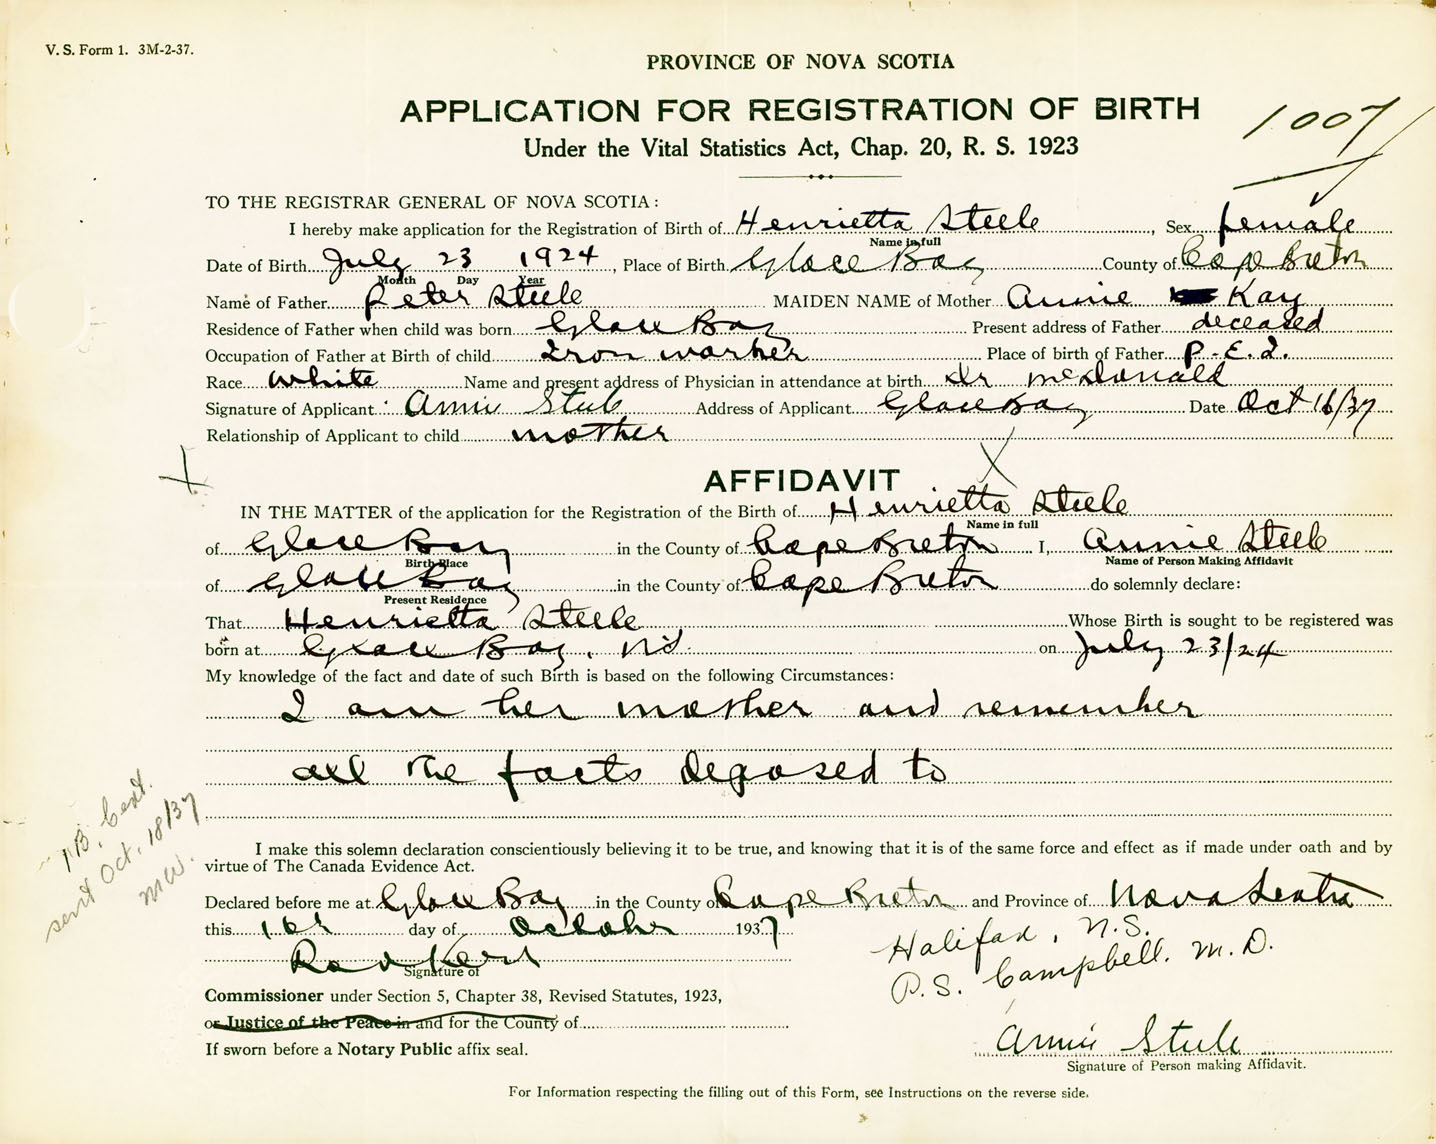 V. S. Form 1. 3M-2-37.
PROVINCE OF NOVA SCOTIA
APPLICATION FOR REGISTRATION OF BIRTH
1007
Under the Vital Statistics Act, Chap. 20, R. S. 1923
TO THE REGISTRAR GENERAL OF NOVA SCOTIA:
I hereby make application for the Registration of Birth of Henrietta Steele, Sex female
Name in full
Date of Birth July 23 1924, Place of Birth Glace Bay County of Cape Breton
Month Day Year
Name of Father Peter Steele MAIDEN NAME of Mother Annie Kay
Residence of Father when child was born Glace Bay Present address of Father deceased
Occupation of Father at Birth of child Iron worker Place of birth of Father P.E.I.
Race White Name and present address of Physician in attendance at birth Dr McDonald
Signature of Applicant Annie Steele Address of Applicant Glace Bay Date Oct 16/37
Relationship of Applicant to child mother
X X
AFFIDAVIT
IN THE MATTER of the application for the Registration of the Birth of Henrietta Steele
Name in full
of Glace Bay in the County of Cape Breton I, Annie Steele
Birth Place Name of Person Making Affidavit
of Glace Bay in the County of Cape Breton do solemnly declare:
Present Residence
That Henrietta Steele Whose Birth is sought to be registered was
born at Glace Bay, NS. on July 23/24
My knowledge of the fact and date of such Birth is based on the following Circumstances:
I am her mother and remember
all the facts deposed to
I make this solemn declaration conscientiously believing it to be true, and knowing that it is of the same force and effect as if made under oath and by
virtue of The Canada Evidence Act.
B. Cert.
sent Oct. 18/37
MW.
Declared before me at Glace Bay in the County of Cape Breton and Province of Nova Scotia
this 16th day of October 1937
Halifax, N.S.
P.S. Campbell. M.D.
Signature of
Commissioner under Section 5, Chapter 38, Revised Statutes, 1923,
or Justice of the Peace in and for the County of
If sworn before a Notary Public affix seal.
Annie Steele
Signature of Person making Affidavit.
For Information respecting the filling out of this Form, see Instructions on the reverse side.